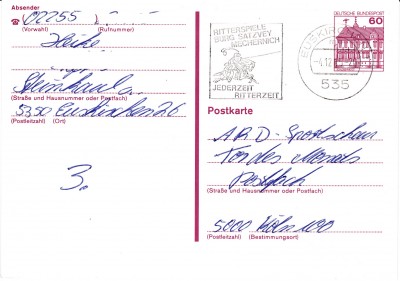 Absender
02255
(Vorwahl) (Rufnummer)
Heike
(Straße und Hausnummer oder Postfach)
5350 Euskirchen 26
(Postleitzahl) (Ort)
3.
RITTERSPIELE
BURG SATZVEY
MECHERNICH
JEDERZEIT
RITTERZEIT
535
DEUTSCHE BUNDESPOST
60
Postkarte
ARD-Sportschau
Tor des Monats
Postfach
(Straße und Hausnummer oder Postfach)
5000 Köln 100
(Postleitzahl) (Bestimmungsort)